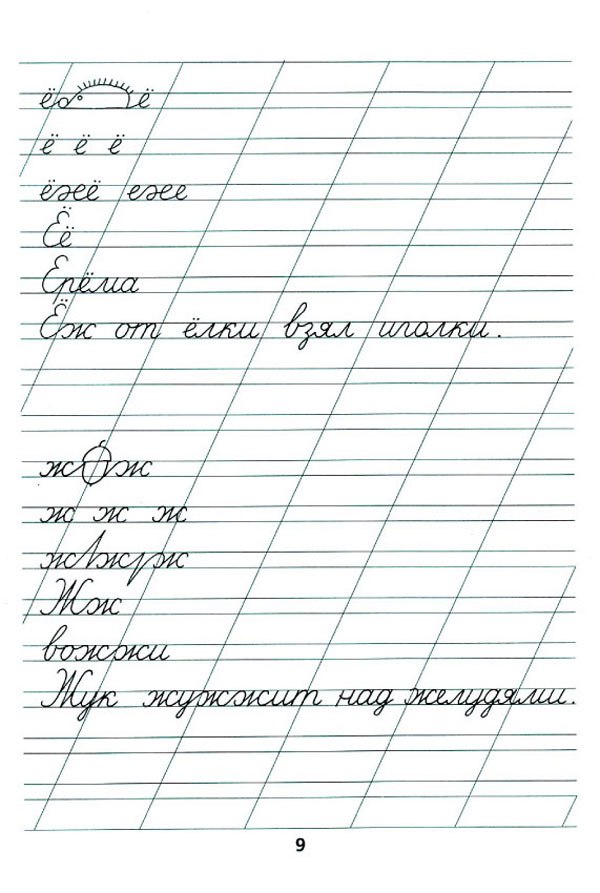 ё ё
ё ё ё
ёжё еже
Её
Ерёма
Ёж от ёлки взял иголки.
ж ж
ж ж ж
ж ж ж
Жж
вожжи
Жук жужжит над желудями.
9